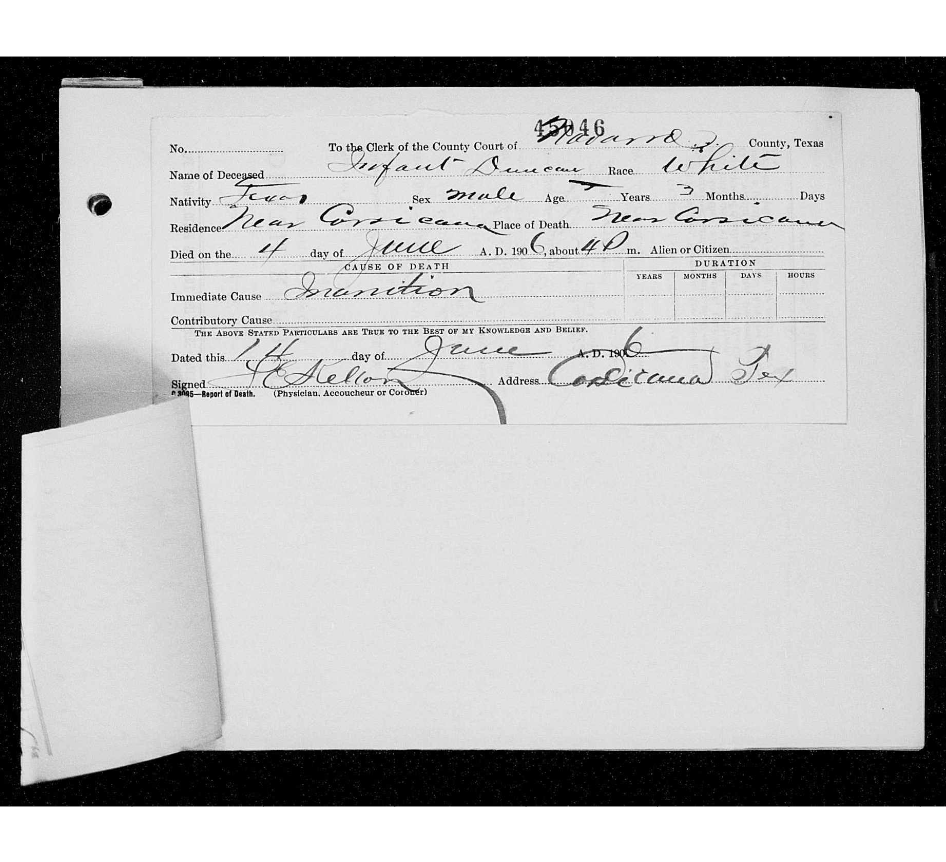 45946
No. To the Clerk of the County Court of Navarro County, Texas
Name of Deceased Infant Duncan Race White
Nativity Texas Sex male Age Years 3 Months Days
Residence Near Corsicana Place of Death Near Corsicana
Died on the 4 day of June A. D. 1906, about 4 P m. Alien or Citizen
CAUSE OF DEATH DURATION
YEARS MONTHS DAYS HOURS
Immediate Cause Inanition
Contributory Cause
THE ABOVE STATED PARTICULARS ARE TRUE TO THE BEST OF MY KNOWLEDGE AND BELIEF.
Dated this 14 day of June A. D. 1906
Signed Address Corsicana Tex
—Report of Death. (Physician, Accoucheur or Coroner)